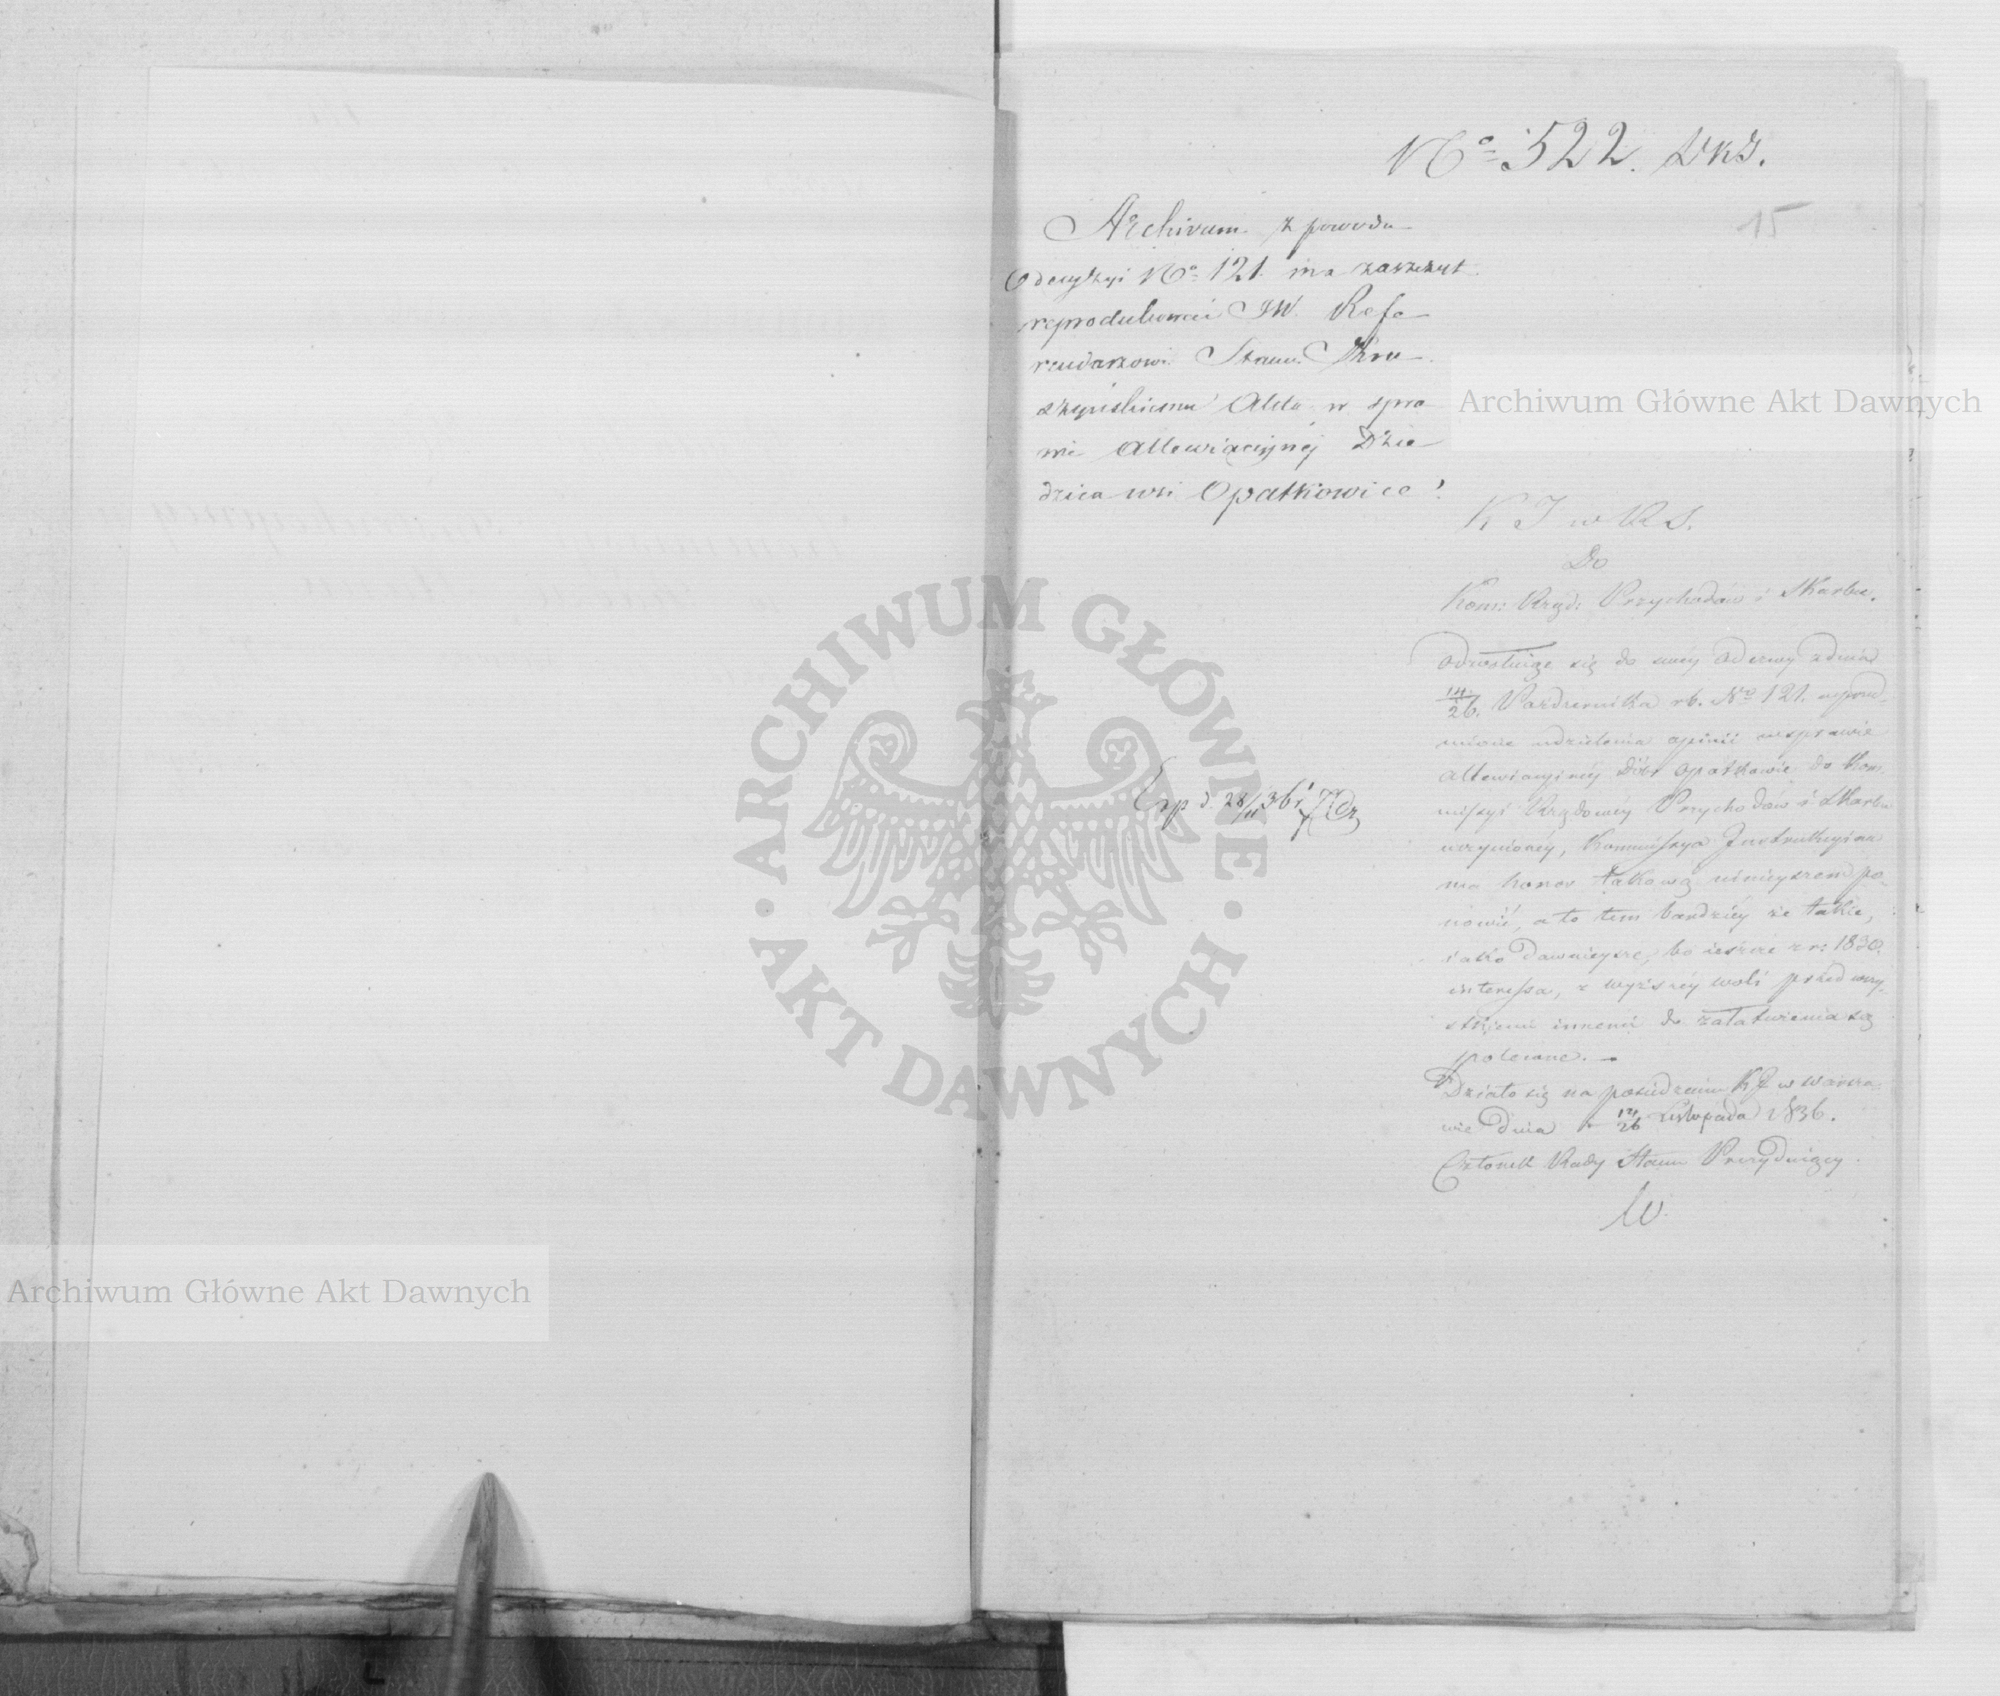 No 522. Dks.
15
Archivum z powodu
Odezwy No 121. ma zaszczyt
reprodukować JW. Refe-
rendarzowi Stanu
Akta w spra
wie Allewiacyjnej Dzie-
dzica wsi Opatkowice
K J w K S.
Do
Kom: Rząd: Przychodów i Skarbu.
Odwołując się do swey Odezwy z dnia
14/26. Października rb. No 121. wzglę-
udzielenia opinii w sprawie
Allewiacyjnéy Dóbr Opatkowic do Kom-
missyi Rządowéy Przychodów i Skarbu
uczynionéy, Kommissya Instrukcyjna
ma honor takową ninieyszem po-
nowić, a to tem bardziéy że takie,
iako dawnieysze, bo ieszcze z r: 1830.
interessa, z wyższéy woli przed wszy-
stkiemi innemi do załatwienia są
polecone.
Działo się na posiedzeniu KJ w Warsza-
wie dnia 14/26 Listopada 1836.
Członek Rady Stanu Prezyduiący.
W.
Exp d. 28/11 36 r
ARCHIWUM GŁÓWNE
AKT DAWNYCH
Archiwum Główne Akt Dawnych
Archiwum Główne Akt Dawnych